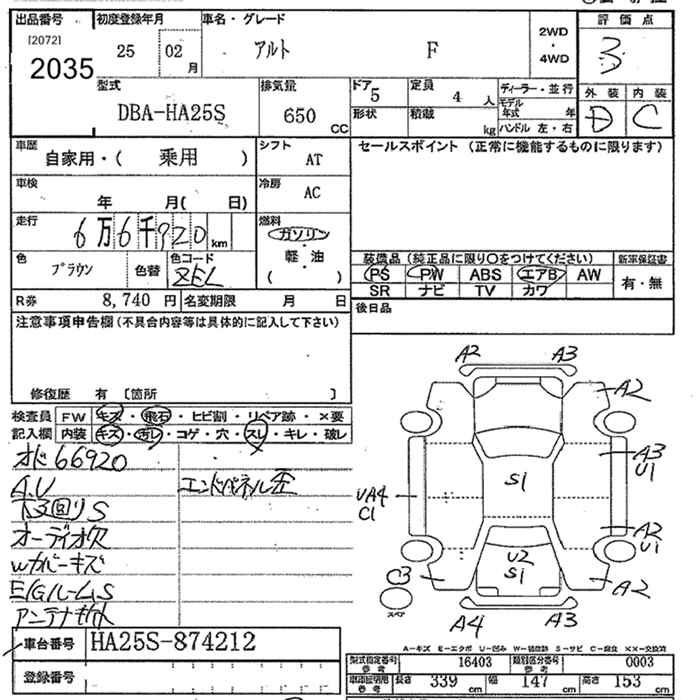 出品番号 初度登録年月 車名・グレード 評価点
[2072]
2035 25 02月 アルト F 2WD・4WD 3
型式 排気量 ドア 定員 ディーラー・並行 外装 内装
DBA-HA25S 650 CC 5 4 人 モデル年式 年 D C
形状 積載 kg ハンドル 左・右
車歴 自家用・( 乗用 ) シフト AT セールスポイント (正常に機能するものに限ります)
車検 年 月( 日) 冷房 AC
走行 6万6千920 km 燃料 ガソリン・軽・油 ( )
色 ブラウン 色替 色コード ZEL
装備品 (純正品に限り○をつけてください) 新車保証書
PS PW ABS エアB AW 有・無
SR ナビ TV カワ
R券 8,740 円 名変期限 月 日 後日品
注意事項申告欄(不具合内容等は具体的に記入して下さい)
修復歴 有 [箇所 ]
検査員 FW キズ・飛石・ヒビ割・リペア跡・×要
記入欄 内装 キズ・汚レ・コゲ・穴・スレ・キレ・破レ
オド66920
A.U エンドパネル歪
下回りS
オーディオ欠
Wカバーキズ
E/GルームS
アンテナ
A2 A3
A2
A3
U1
UA4
C1
S1
A2
U1
U2
S1
C3
A2
スペア
A4 A3
A-キズ E-エクボ U-凹み W-補修跡 S-サビ C-腐食 ××-交換済
車台番号 HA25S-874212
登録番号
型式指定番号 参考 16403 類別区分番号 参考 0003
車検証明用 参考 長さ 339 cm 幅 147 cm 高さ 153 cm